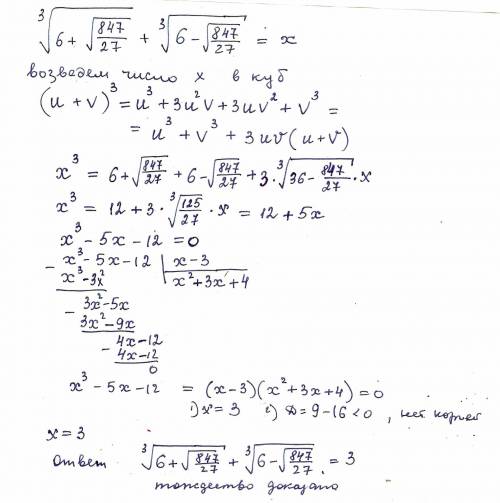 ∛(6 + √(847/27)) + ∛(6 − √(847/27)) = x
возведем число x в куб
(u + v)³ = u³ + 3u²v + 3uv² + v³ =
= u³ + v³ + 3uv(u + v)
x³ = 6 + √(847/27) + 6 − √(847/27) + 3·∛(36 − 847/27)·x
x³ = 12 + 3·∛(125/27)·x = 12 + 5x
x³ − 5x − 12 = 0
− x³ − 5x − 12 | x − 3
x³ − 3x² | x² + 3x + 4
− 3x² − 5x
3x² − 9x
− 4x − 12
4x − 12
0
x³ − 5x − 12 = (x − 3)(x² + 3x + 4) = 0
1) x = 3 2) D = 9 − 16 < 0, нет корней
x = 3
ответ ∛(6 + √(847/27)) + ∛(6 − √(847/27)) = 3
тождество доказано